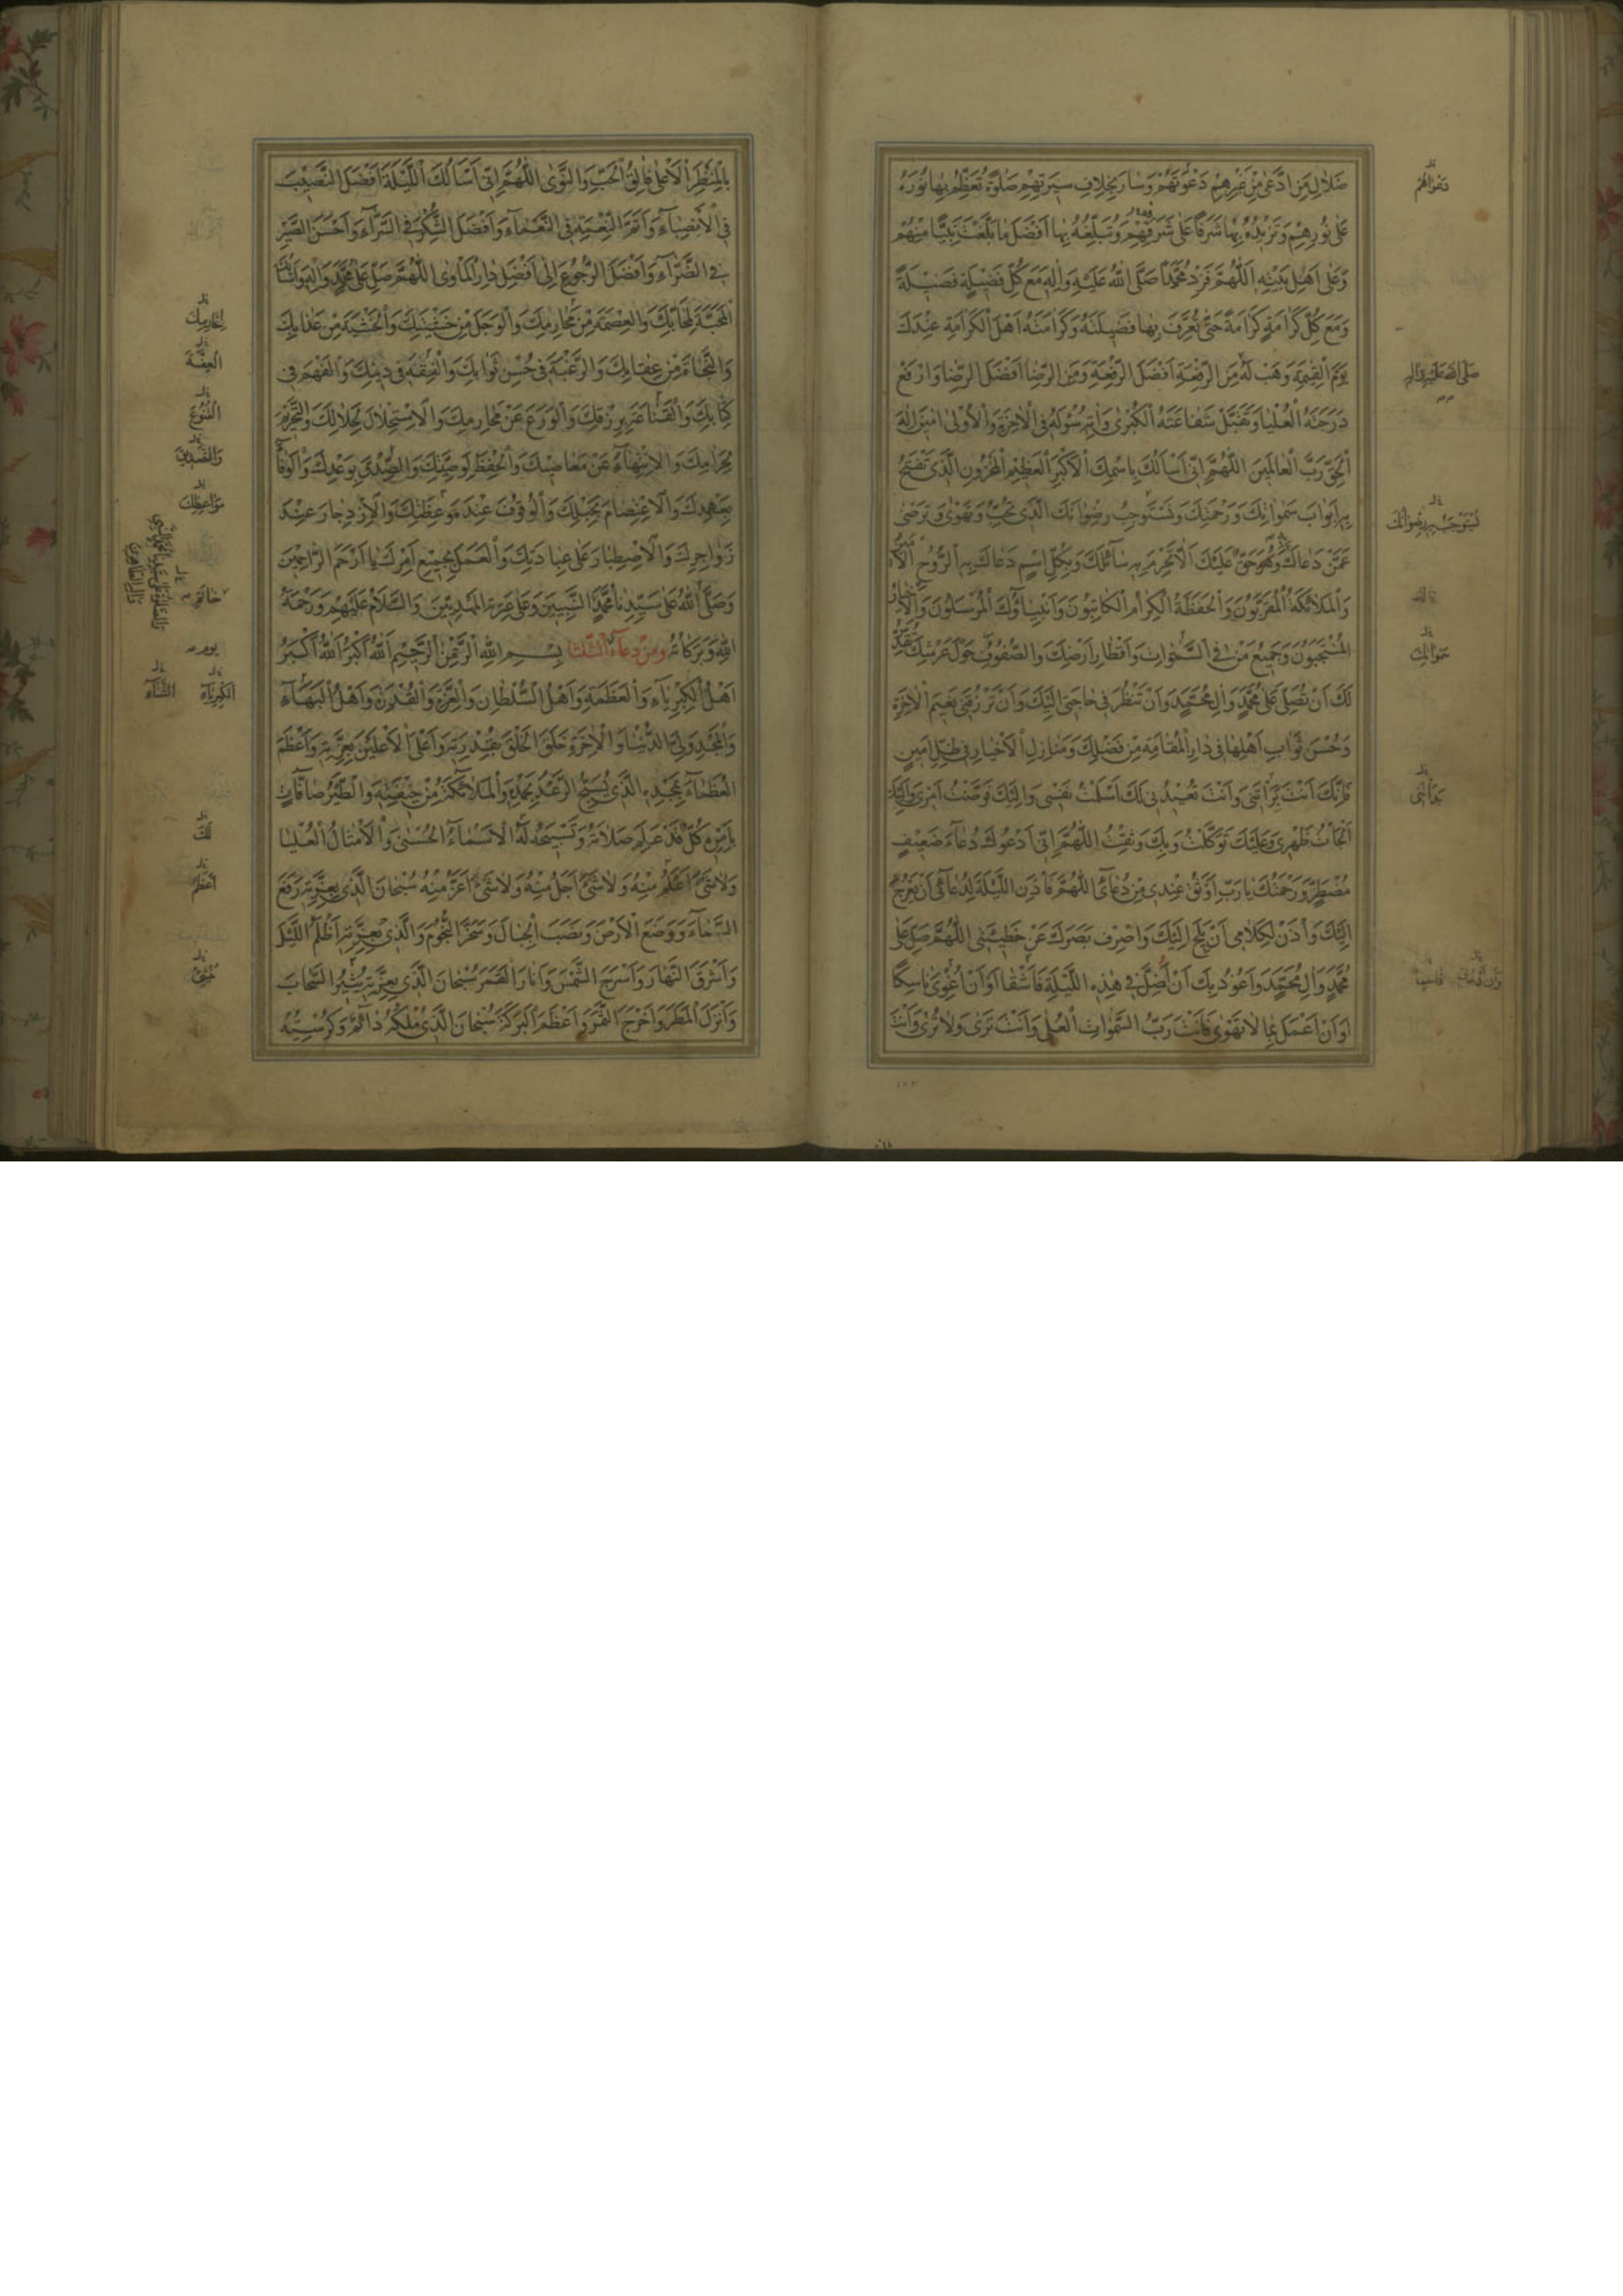 ضَلَالِ مَنِ ادَّعَىٰ مِنْ غَيْرِهِمْ دَعْوَتَهُمْ وَسَارَ بِخِلَافِ سِيرَتِهِمْ صَلٰوةً تُعَظِّمُ بِهَا نُورَهُ
عَلَىٰ نُورِهِمْ وَتَزِيدُهُ بِهَا شَرَفًا عَلَىٰ شَرَفِهِمْ وَتُبَلِّغُهُ بِهَا أَفْضَلَ مَا بَلَّغْتَ نَبِيًّا مِنْهُمْ
وَعَلَىٰ أَهْلِ بَيْتِهِ اَللّٰهُمَّ فَزِدْ مُحَمَّدًا صَلَّى اللّٰهُ عَلَيْهِ وَاٰلِهِ مَعَ كُلِّ فَضِيلَةٍ فَضِيلَةً
وَمَعَ كُلِّ كَرَامَةٍ كَرَامَةً حَتّٰى تُعَرِّفَ بِهَا فَضِيلَتَهُ وَكَرَامَتَهُ أَهْلَ الْكَرَامَةِ عِنْدَكَ
يَوْمَ الْقِيٰمَةِ وَهَبْ لَهُ مِنَ الرِّفْعَةِ أَفْضَلَ الرِّفْعَةِ وَمِنَ الرِّضَا أَفْضَلَ الرِّضَا وَارْفَعْ
دَرَجَتَهُ الْعُلْيَا وَتَقَبَّلْ شَفَاعَتَهُ الْكُبْرَىٰ وَاٰتِهِ سُؤْلَهُ فِي الْاٰخِرَةِ وَالْأُولَىٰ اٰمِينَ إِلٰهَ
الْحَقِّ رَبَّ الْعَالَمِينَ اللّٰهُمَّ إِنِّي أَسْأَلُكَ بِاسْمِكَ الْأَكْبَرِ الْعَظِيمِ الْمَخْزُونِ الَّذِي تَفْتَحُ
بِهِ أَبْوَابَ سَمٰوَاتِكَ وَرَحْمَتِكَ وَتَسْتَوْجِبُ رِضْوَانَكَ الَّذِي تُحِبُّ وَتَهْوَىٰ وَتَرْضَىٰ
عَمَّنْ دَعَاكَ بِهِ وَهُوَ حَقٌّ عَلَيْكَ أَلَّا تَحْرِمَ بِهِ سَائِلَكَ وَبِكُلِّ اسْمٍ دَعَاكَ بِهِ الرُّوحُ الْأَمِينُ
وَالْمَلَائِكَةُ الْمُقَرَّبُونَ وَالْحَفَظَةُ الْكِرَامُ الْكَاتِبُونَ وَأَنْبِيَاؤُكَ الْمُرْسَلُونَ وَالْأَخْيَارُ
الْمُنْتَجَبُونَ وَجَمِيعُ مَنْ فِي السَّمٰوَاتِ وَأَقْطَارِ أَرْضِكَ وَالصُّفُوفُ حَوْلَ عَرْشِكَ تُقَدِّسُ
لَكَ أَنْ تُصَلِّيَ عَلَىٰ مُحَمَّدٍ وَاٰلِ مُحَمَّدٍ وَأَنْ تَنْظُرَ فِي حَاجَتِي إِلَيْكَ وَأَنْ تَرْزُقَنِي نَعِيمَ الْاٰخِرَةِ
وَحُسْنَ ثَوَابِ أَهْلِهَا فِي دَارِ الْمُقَامَةِ مِنْ فَضْلِكَ وَمَنَازِلِ الْأَخْيَارِ فِي ظِلٍّ أَمِينٍ
فَإِنَّكَ أَنْتَ بَرَأْتَنِي وَأَنْتَ تُعِيدُنِي لَكَ أَسْلَمْتُ نَفْسِي وَإِلَيْكَ فَوَّضْتُ أَمْرِي وَإِلَيْكَ
أَلْجَأْتُ ظَهْرِي وَعَلَيْكَ تَوَكَّلْتُ وَبِكَ وَثِقْتُ اللّٰهُمَّ إِنِّي أَدْعُوكَ دُعَاءَ ضَعِيفٍ
مُضْطَرٍّ وَرَحْمَتُكَ يَا رَبِّ أَوْثَقُ عِنْدِي مِنْ دُعَائِي اللّٰهُمَّ فَأْذَنِ اللَّيْلَةَ لِدُعَائِي أَنْ يَعْرُجَ
إِلَيْكَ وَأْذَنْ لِكَلَامِي أَنْ يَلِجَ إِلَيْكَ وَاصْرِفْ بَصَرَكَ عَنْ خَطِيئَتِي اللّٰهُمَّ صَلِّ عَلَىٰ
مُحَمَّدٍ وَاٰلِ مُحَمَّدٍ وَأَعُوذُ بِكَ أَنْ أَضِلَّ فِي هٰذِهِ اللَّيْلَةِ فَأَشْقَىٰ أَوْ أَنْ أُغْوِيَ نَاسِكًا
أَوْ أَنْ أَعْمَلَ بِمَا لَا تَهْوَىٰ فَأَنْتَ رَبُّ السَّمٰوَاتِ الْعُلَىٰ وَأَنْتَ تَرَىٰ وَلَا تُرَىٰ وَأَنْتَ
دَعْوَاهُمْ
صَلَّى اللّٰهُ عَلَيْهِ وَاٰلِهِ
تَسْتَوْجِبُ بِهِ رِضْوَانَكَ
سَمٰوَاتِكَ
بَدَأْتَنِي
بِالْمَنْظَرِ الْأَعْلَىٰ فَالِقُ الْحَبِّ وَالنَّوَىٰ اللّٰهُمَّ إِنِّي أَسْأَلُكَ اللَّيْلَةَ أَفْضَلَ النَّصِيبِ
فِي الْأَنْصِبَاءِ وَأَتَمَّ النِّعْمَةِ فِي النَّعْمَاءِ وَأَفْضَلَ الشُّكْرِ فِي السَّرَّاءِ وَأَحْسَنَ الصَّبْرِ
فِي الضَّرَّاءِ وَأَفْضَلَ الرُّجُوعِ إِلَىٰ أَفْضَلِ دَارِ الْمَأْوَىٰ اللّٰهُمَّ صَلِّ عَلَىٰ مُحَمَّدٍ وَاٰلِهِ وَأَسْأَلُكَ
الْمَحَبَّةَ لِمَحَابِّكَ وَالْعِصْمَةَ مِنْ مَحَارِمِكَ وَالْوَجَلَ مِنْ خَشْيَتِكَ وَالْخَشْيَةَ مِنْ عَذَابِكَ
وَالنَّجَاةَ مِنْ عِقَابِكَ وَالرَّغْبَةَ فِي حُسْنِ ثَوَابِكَ وَالْفِقْهَ فِي دِينِكَ وَالْفَهْمَ فِي
كِتَابِكَ وَالْقَنَاعَةَ بِرِزْقِكَ وَالْوَرَعَ عَنْ مَحَارِمِكَ وَالْاِسْتِحْلَالَ لِحَلَالِكَ وَالتَّحْرِيمَ
لِحَرَامِكَ وَالْاِنْتِهَاءَ عَنْ مَعَاصِيكَ وَالْحِفْظَ لِوَصِيَّتِكَ وَالصِّدْقَ بِوَعْدِكَ وَالْوَفَاءَ
بِعَهْدِكَ وَالْاِعْتِصَامَ بِحَبْلِكَ وَالْوُقُوفَ عِنْدَ مَوْعِظَتِكَ وَالْاِزْدِجَارَ عِنْدَ
زَوَاجِرِكَ وَالْاِصْطِبَارَ عَلَىٰ عِبَادَتِكَ وَالْعَمَلَ بِجَمِيعِ أَمْرِكَ يَا أَرْحَمَ الرَّاحِمِينَ
وَصَلَّى اللّٰهُ عَلَىٰ سَيِّدِنَا مُحَمَّدٍ النَّبِيِّينَ وَعَلَىٰ عِتْرَتِهِ الْمَهْدِيِّينَ وَالسَّلَامُ عَلَيْهِمْ وَرَحْمَةُ
اللّٰهِ وَبَرَكَاتُهُ وَمِنْ دُعَاءِ الثَّلَثَا بِسْمِ اللّٰهِ الرَّحْمٰنِ الرَّحِيمِ اَللّٰهُ أَكْبَرُ اَللّٰهُ أَكْبَرُ
أَهْلُ الْكِبْرِيَاءِ وَالْعَظَمَةِ وَأَهْلُ السُّلْطَانِ وَالْعِزَّةِ وَالْقُدْرَةِ وَأَهْلُ الْبَهَاءِ
وَالْمَجْدِ وَلِيُّ الدُّنْيَا وَالْاٰخِرَةِ خَلَقَ الْخَلْقَ بِقُدْرَتِهِ وَأَعْلَى الْأَعْلَيْنَ بِعِزَّتِهِ وَأَعْظَمَ
الْعُظَمَاءِ بِمَجْدِهِ الَّذِي يُسَبِّحُ الرَّعْدُ بِحَمْدِهِ وَالْمَلَائِكَةُ مِنْ خِيفَتِهِ وَالطَّيْرُ صَافَّاتٍ
بِأَمْرِهِ كُلٌّ قَدْ عَلِمَ صَلَاتَهُ وَتَسْبِيحَهُ لَهُ الْأَسْمَاءُ الْحُسْنَىٰ وَالْأَمْثَالُ الْعُلْيَا
وَلَا شَيْءَ أَعْلَمُ مِنْهُ وَلَا شَيْءَ أَجَلُّ مِنْهُ وَلَا شَيْءَ أَعَزُّ مِنْهُ سُبْحَانَ الَّذِي بِعِزَّتِهِ رَفَعَ
السَّمَاءَ وَوَضَعَ الْأَرْضَ وَنَصَبَ الْجِبَالَ وَسَخَّرَ النُّجُومَ وَالَّذِي بِعِزَّتِهِ أَظْلَمَ اللَّيْلَ
وَأَشْرَقَ النَّهَارَ وَأَسْرَجَ الشَّمْسَ وَأَنَارَ الْقَمَرَ سُبْحَانَ الَّذِي بِعِزَّتِهِ يُثِيرُ السَّحَابَ
وَأَنْزَلَ الْمَطَرَ وَأَخْرَجَ الثَّمَرَ وَأَعْظَمَ الْبَرَكَةَ سُبْحَانَ الَّذِي مُلْكُهُ دَائِمٌ وَكُرْسِيُّهُ
الْعِفَّةَ
الْقُنُوعَ
وَالتَّصْدِيقَ
مَوَاعِظِكَ
خَاتَمِ
يوم
الْكِبْرِيَاءِ
الثَّنَاءِ
لَكَ
أَعْظَمُ